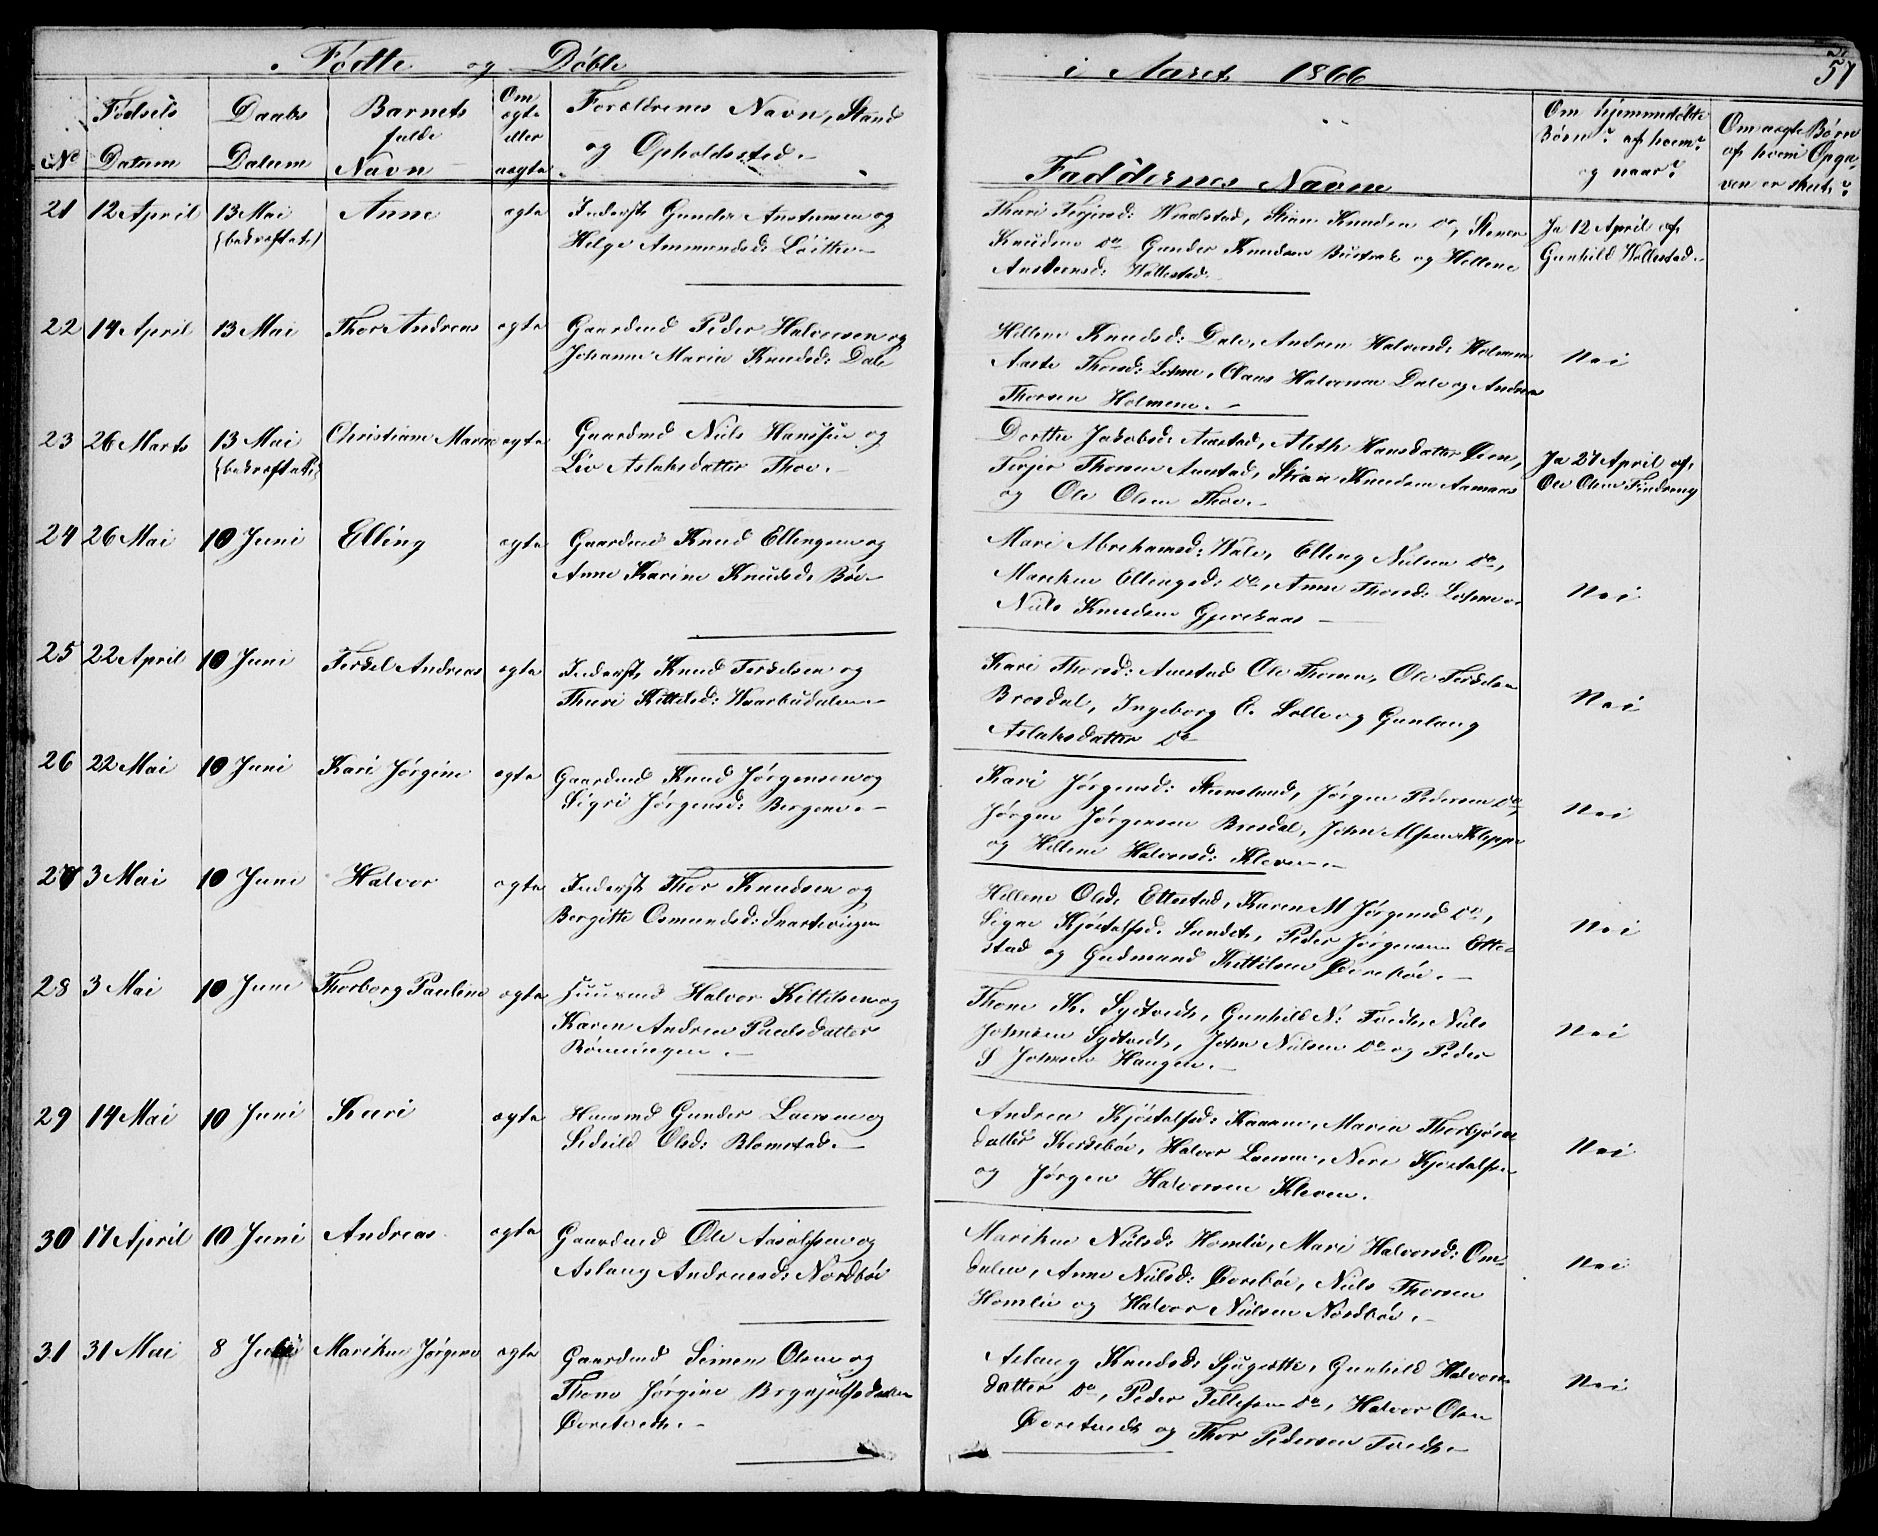 Fødte og Døbte
i Aaret 1866
57
No
Fødsels Datum
Daabs Datum
Barnets fulde Navn
Om ægte eller uægte
Forældrenes Navn, Stand og Opholdssted.
Faddernes Navne
Om hjemmedøbte Børn? af hvem? og naar?
Om uægte Børn af hvem Opgaven er skeet?
21 12 April 13 Mai (bekræftet) Anne ægte Inderst Gunder Anstensen og
Helge Ammundsd:
Kari Terjersd: Stian Knudsen Do, Stener
Knudsen Do Gunder Knudsen og Hellene
Anstensd: Wollestad.
Ja 12 April af
Gunhild Wollestad.
22 14 April 13 Mai Thor Andreas ægte Gaardmd Peder Halvorsen og
Johanne Maria Knudsd: Dale
Hellene Knudsd: Dale, Andrea Halvorsd: Holmen
Aaste Thorsd: Claus Halvorsen Dale og Andreas
Thorsen Holmene.
Nei
23 26 Marts 13 Mai (bekræftet) Christiane Marie ægte Gaardmd Niels Hanssen og
Liv Aslaksdatter Thov.
Dorthe Jakobsd: Aamtad, Aleth Hansdatter Øen,
Terjer Thorsen Stian Knudsen Aamaas
og Ole Olsen Thov.
Ja 27 April af
Ole Olsen
24 26 Mai 10 Juni Elling ægte Gaardmd Knud Ellingsen og
Anne Karine Knudsd: Bøe
Mari Abrehamsd: Elling Nielsen Do,
Marthea Ellingsd: Do, Anne Thorsd:
Niels Knudsen
Nei
25 22 April 10 Juni Terkel Andreas ægte Inderst Knud Terkelsen og
Thuri Kittilsd:
Kari Thorsd: Ole Thorsen, Ole Terkelsen
Bresdal, Ingeborg O. Solle og Gunlaug
Aslaksdatter Do
Nei
26 22 Mai 10 Juni Kari Jørgine ægte Gaardmd Knud Jørgensen og
Sigri Jørgensd: Bergene.
Kari Jørgensd: Jørgen Pedersen Do,
Jørgen Jørgensen Bresdal, John Alfsen Kleppe
og Hellene Halvorsd: Kleven.
Nei
27 3 Mai 10 Juni Halvor ægte Inderst Thor Knudsen og
Bergitte Osmundsd:
Hellene Olsd: Ettestad, Karen M Jørgensd Do,
Signe Kjøstolfsd. Sundet, Peder Jørgensen Ette-
stad og Gudmund Kittilsen Øvrebøe.
Nei
28 3 Mai 10 Juni Thorborg Pauline ægte Huusmd Halvor Kittilsen og
Karen Andrea Paulsdatter
Rønningen.
Thone K. Sydtvedt, Gunhild N: Tvedt, Niels
Johnsen Sydtvedt, John Nielsen Do og Peder
S Johnsen Haugen.
Nei
29 14 Mai 10 Juni Kari ægte Huusmd Gunder Larsen og
Sidsild Olsd: Blomstad.
Andrea Kjøstolfsd: Maren Thorbjørns-
datter Halvor Larsen, Neri Kjøstolfsen
og Jørgen Halvorsen Kleven.
Nei
30 17 April 10 Juni Andreas ægte Gaardmd Ole Aasolfsen og
Aslaug Andreasd: Nordbøe
Marthea Nielsd: Homlie, Mari Halvorsd: Om-
dalen, Anne Nielsd: Øvrebøe, Niels Thorsen
Homlie og Halvor Nielsen Nordbøe.
Nei
31 31 Mai 8 Juli Marthea Jørgine ægte Gaardmd Simen Olsen og
Thone Jørgine Brynjulfsdatter
Øvretvedt.
Aslaug Knudsd: Gunhild Halvors-
datter Do, Peder Tellefsen Do, Halvor Olsen
Øvretvedt og Thor Pedersen Tvedt.
Nei